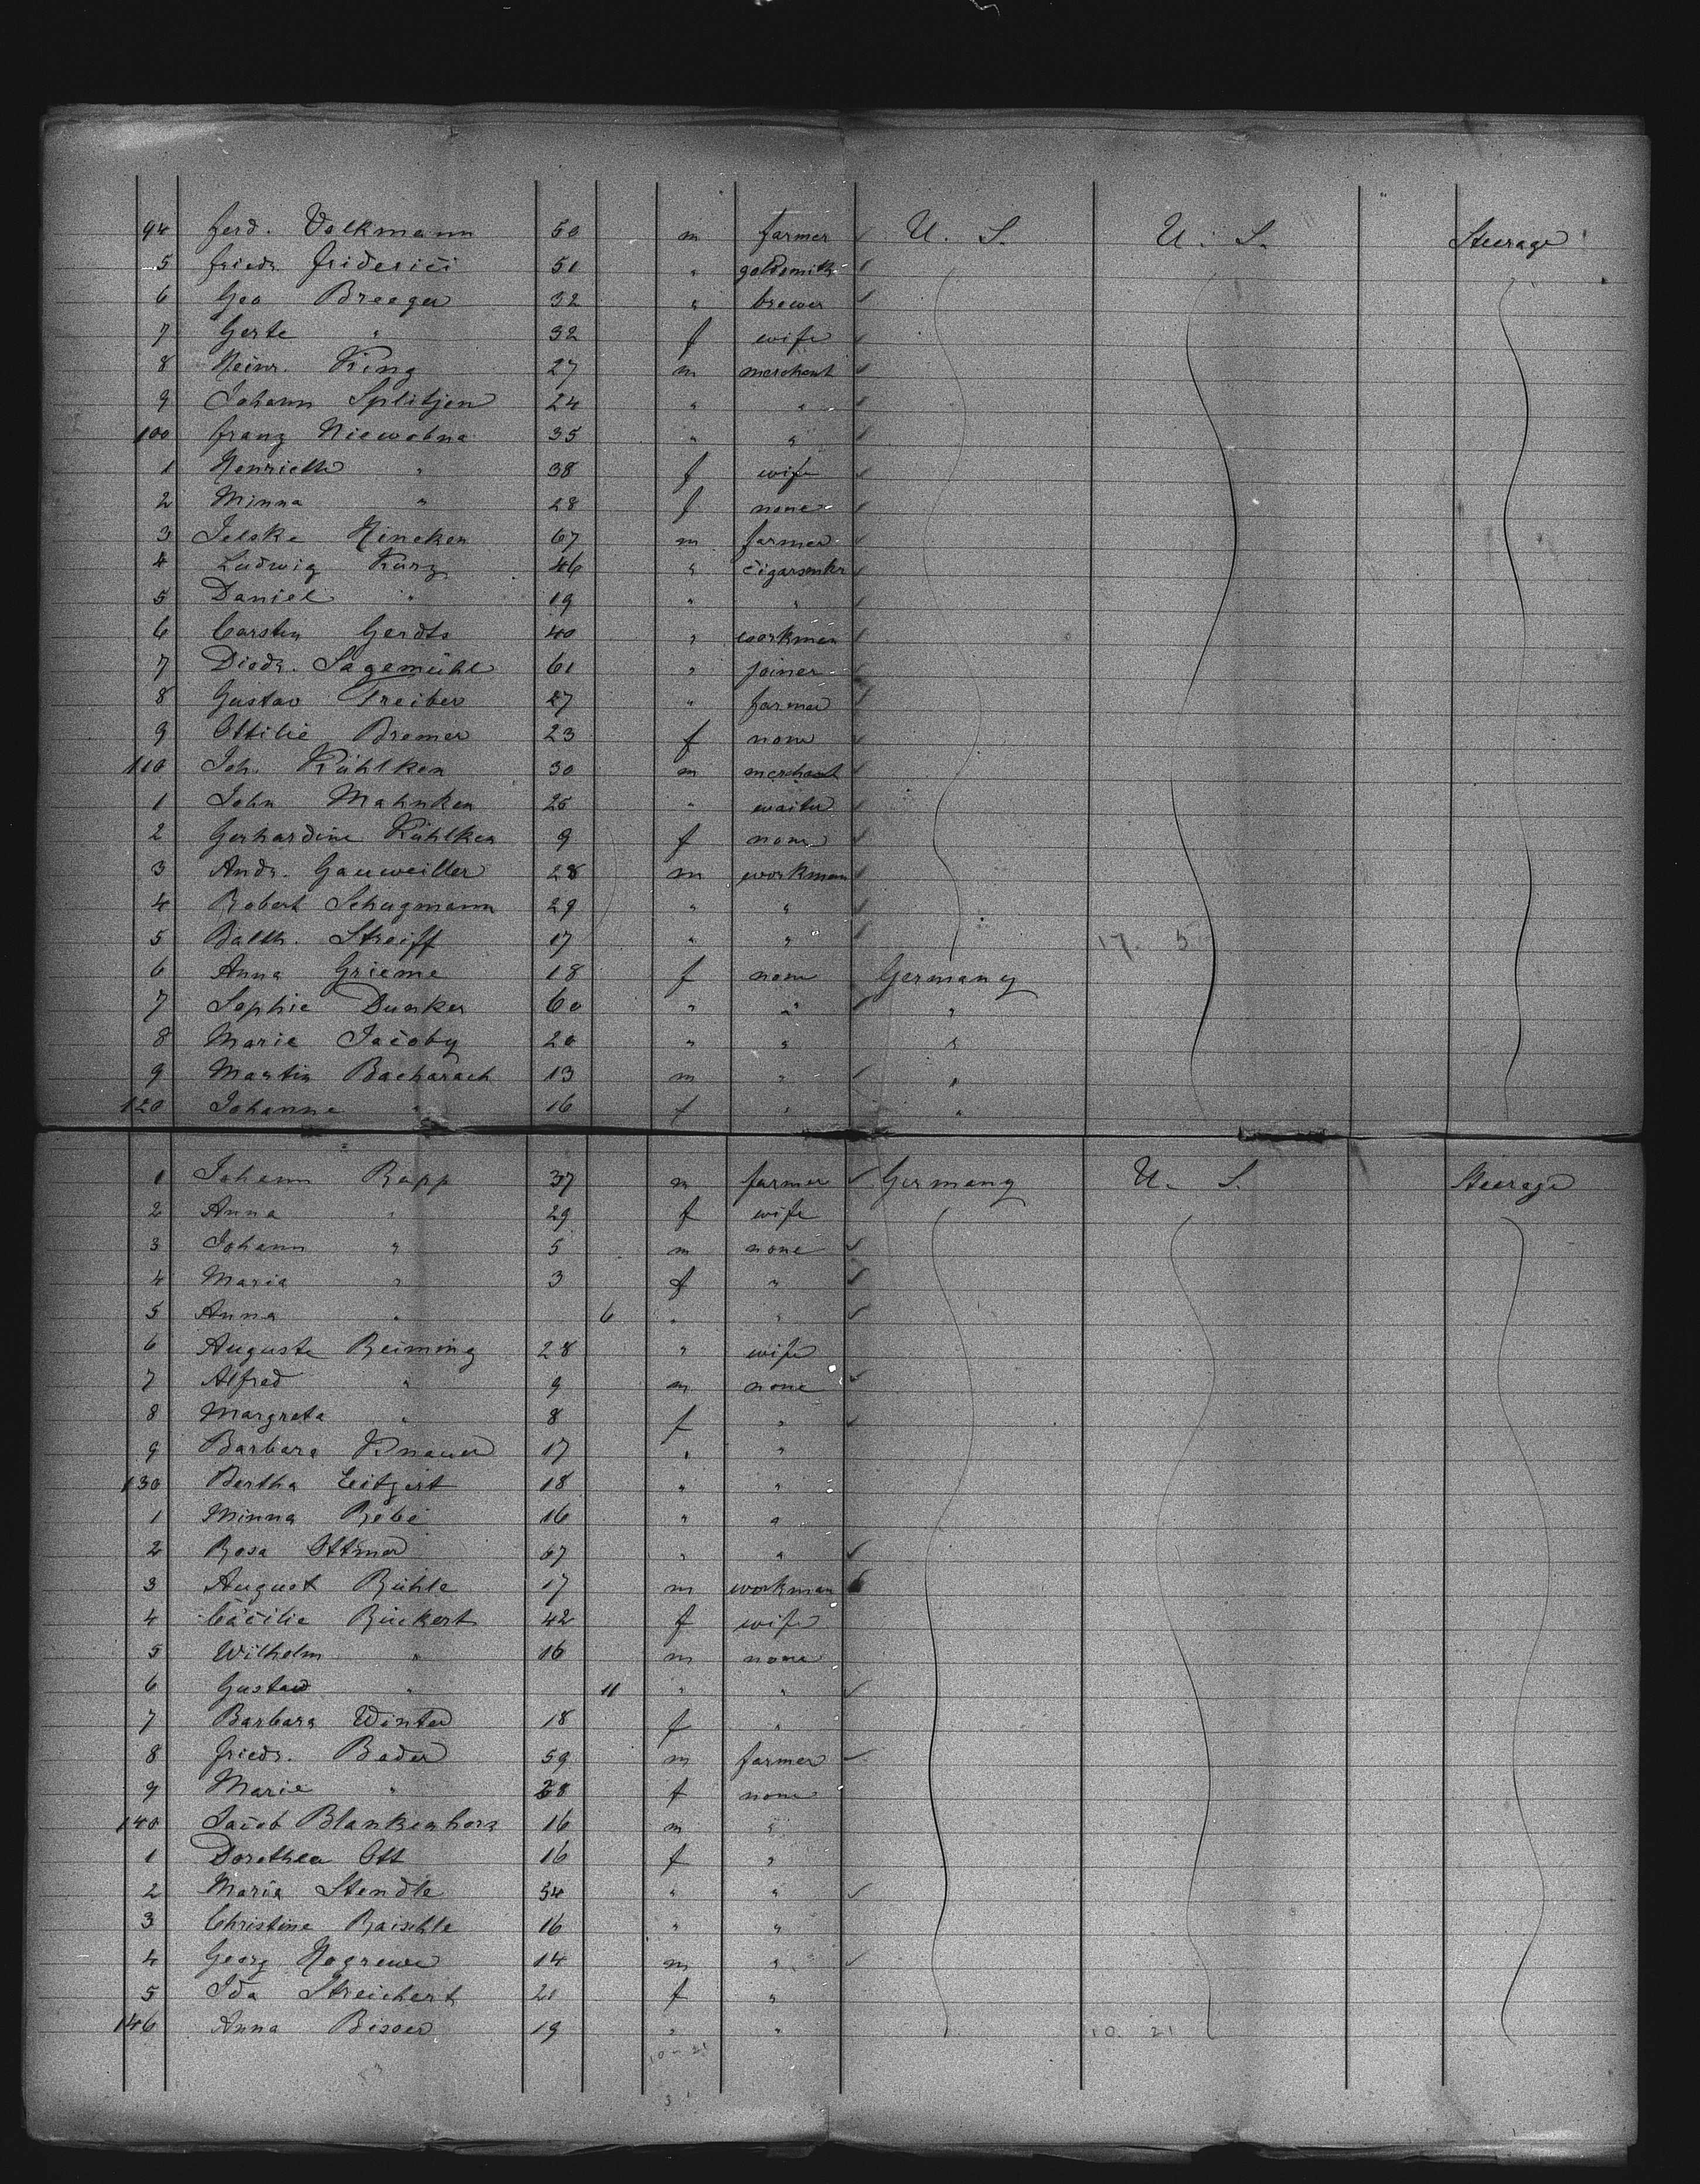 94 Ferd. Volkmann 50 m farmer U. S. U. S. Steerage
5 Friedr. Friderici 51 " goldsmith
6 Geo Breeger 32 " brewer
7 Gerte " 32 f wife
8 Heinr. King 27 m merchant
9 Johann Splitjen 24 " "
100 Franz Niewohna 35 " "
1 Henriette " 38 f wife
2 Minna " 28 f none
3 Jelske Hincken 67 m farmer
4 Ludwig Kurz 46 " cigarmkr
5 Daniel " 19 " "
6 Carsten Gerdts 40 " workman
7 Diedr. Sagemühl 61 " joiner
8 Gustav Treiber 27 " farmer
9 Ottilie Bremer 23 f none
110 Joh. Kühlken 30 m merchant
1 John Mahnken 25 " waiter
2 Gerhardine Kühlken 9 f none
3 Andr. Gauweiller 28 m workman
4 Robert Schugmann 29 " "
5 Balth. Streiff 17 " " 17. 5
6 Anna Grieme 18 f none Germany
7 Sophie Dunker 60 " " "
8 Marie Jacoby 20 " " "
9 Martin Bacharach 13 m " "
120 Johanne " 16 f " "
1 Johann Rapp 37 m farmer Germany U. S. Steerage
2 Anna " 29 f wife
3 Johann " 5 m none
4 Maria " 3 f "
5 Anna " 6 " "
6 Auguste Reiming 28 " wife
7 Alfred " 9 m none
8 Margreta " 8 f "
9 Barbara Knauer 17 " "
130 Bertha Leitgert 18 " "
1 Minna Rebe 16 " "
2 Rosa Ottmer 67 " "
3 August Rühle 17 m workman
4 Cäcilie Rückert 42 f wife
5 Wilhelm " 16 m none
6 Gustav " 11 " "
7 Barbara Winter 18 f "
8 Friedr. Bader 59 m farmer
9 Marie " 28 f none
140 Jacob Blankenhorn 16 m "
1 Dorethea Ott 16 f "
2 Maria Stendle 54 " "
3 Christine Raischle 16 " "
4 Georg Hogrewe 14 m "
5 Ida Streichert 21 f "
146 Anna Bisoer 19 " " 10. 21
10-21